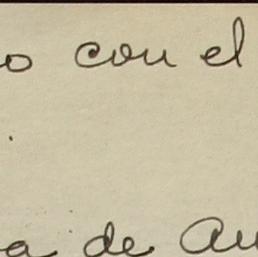 o con el
a de Au